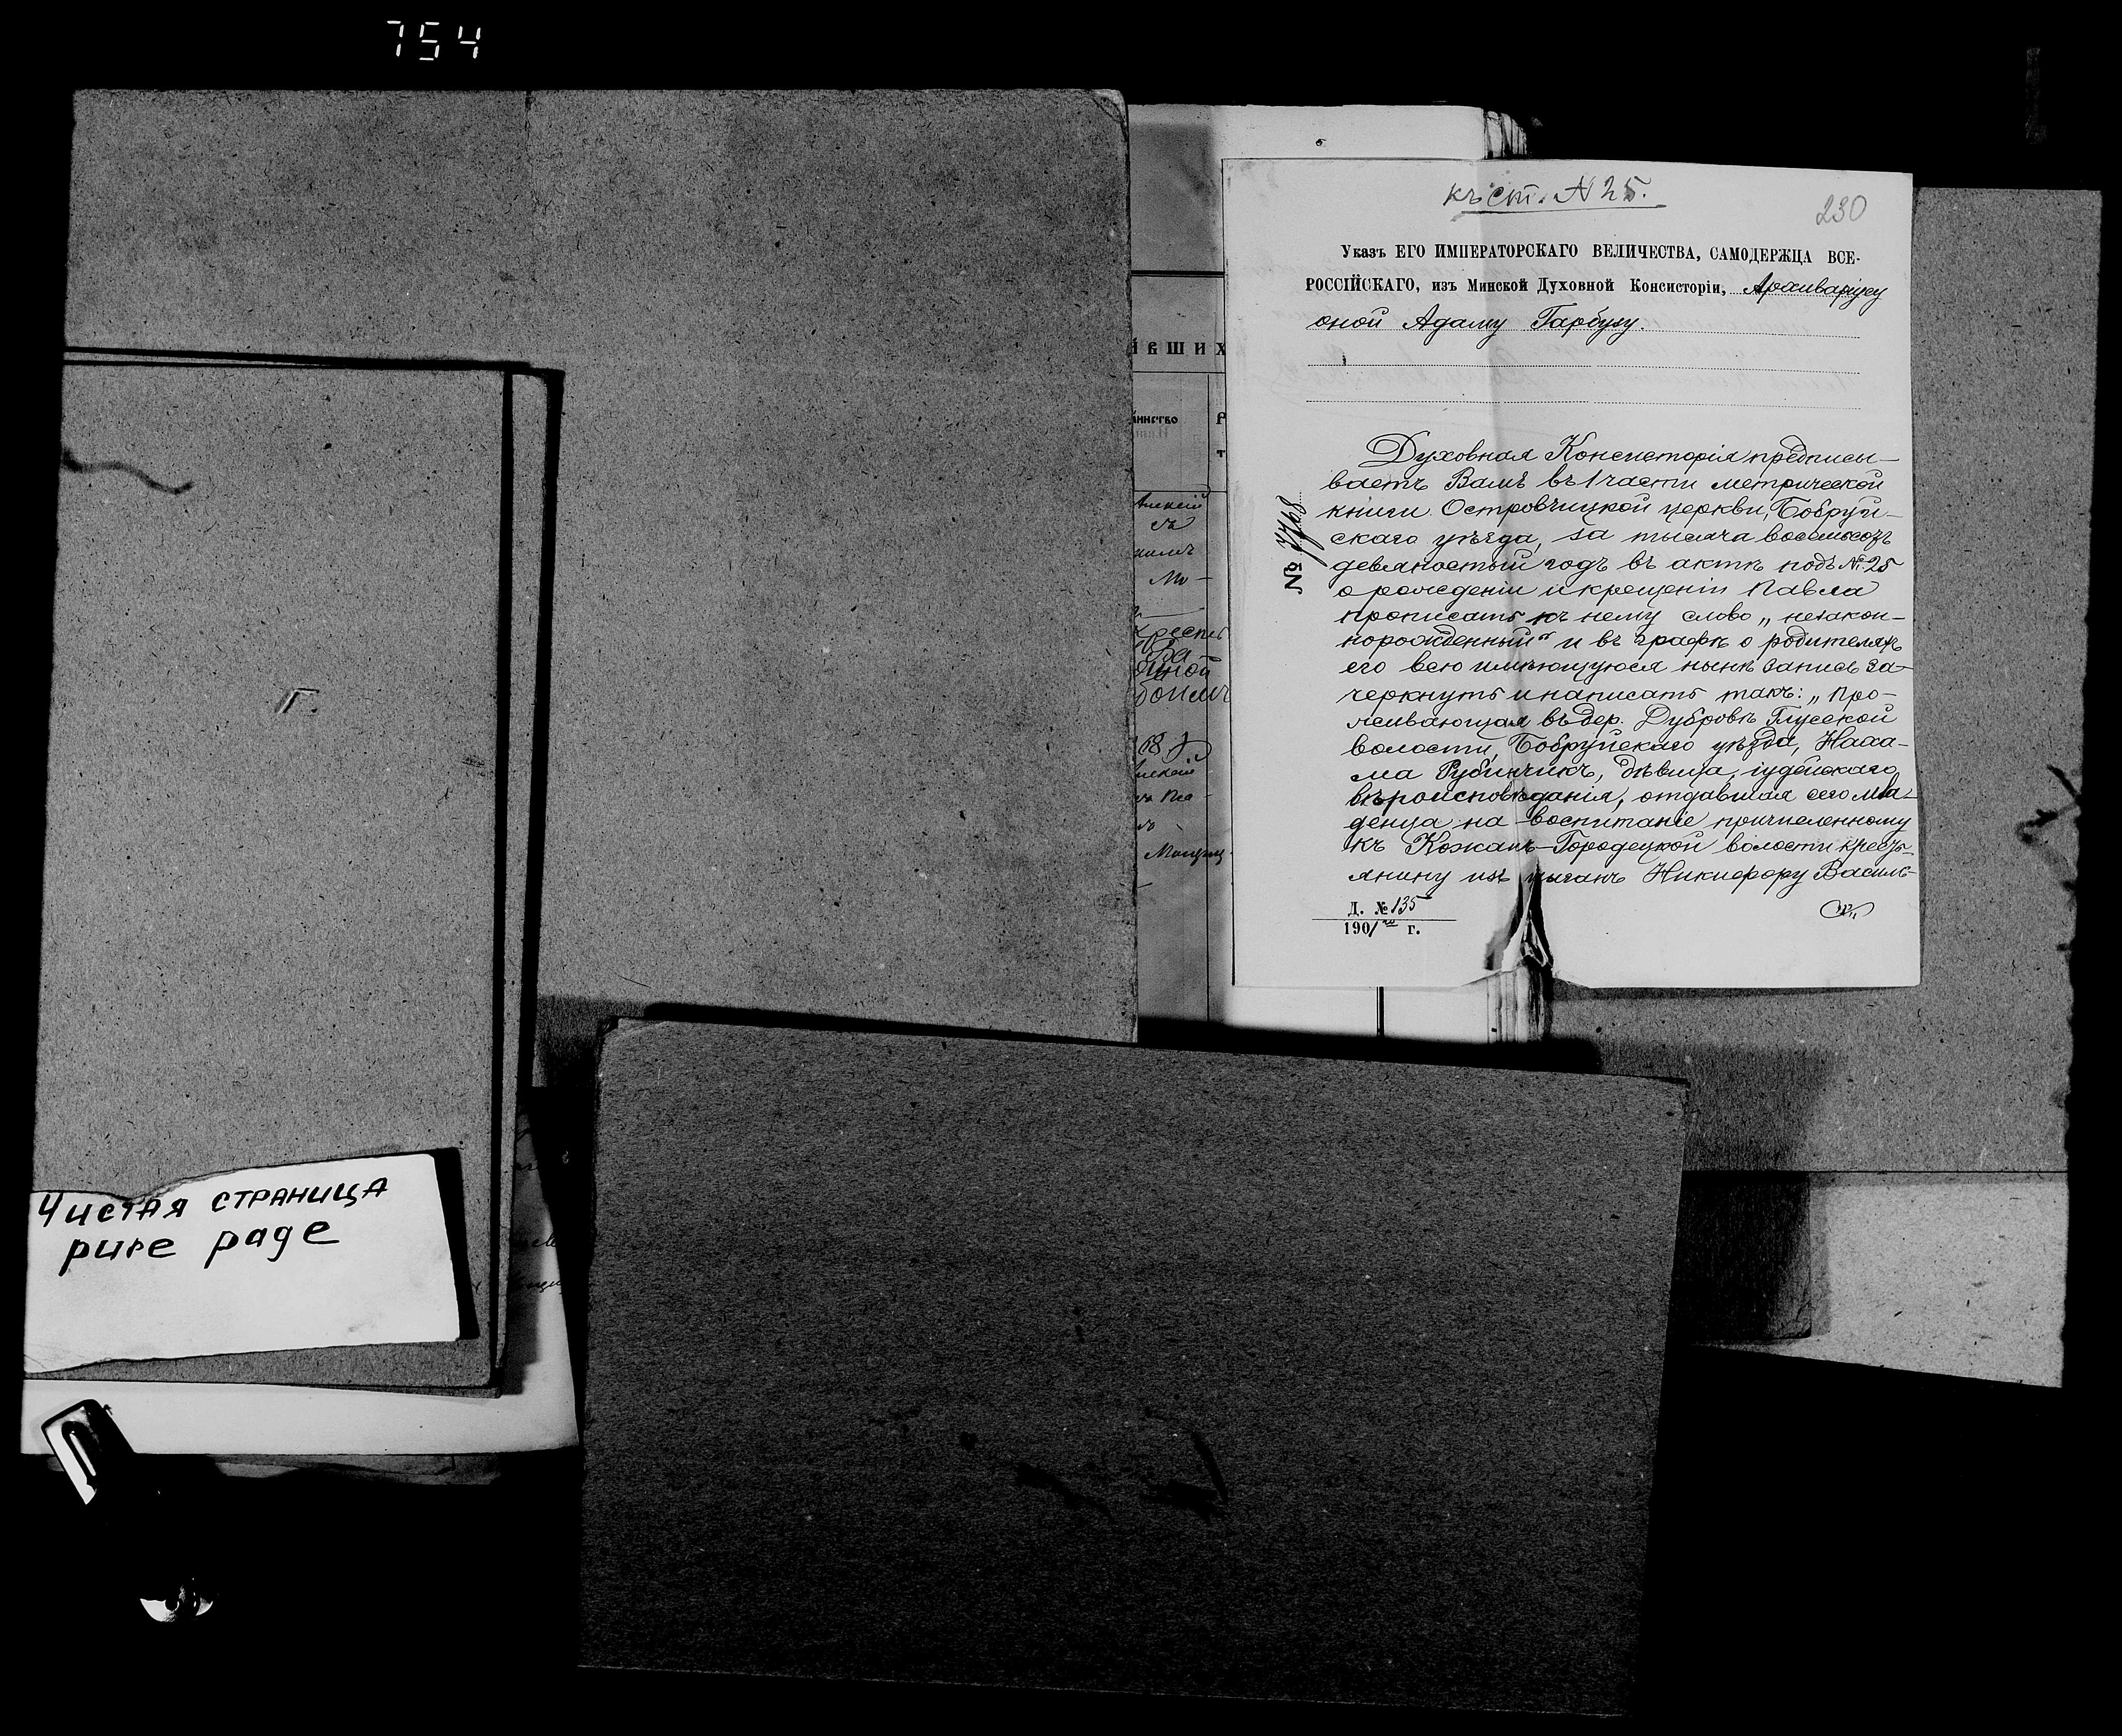 754
къ ст. № 25.
230
Указъ ЕГО ИМПЕРАТОРСКАГО ВЕЛИЧЕСТВА, САМОДЕРЖЦА ВСЕ-
РОССІЙСКАГО, изъ Минской Духовной Консисторіи, Архиваріусу
оной Адаму Гарбузу.
№ 7768
Духовная Консисторія предписы-
ваетъ Вамъ въ 1 части метрической
книги Островчицкой церкви, Бобруй-
скаго уѣзда, за тысяча восемьсотъ
девяностый годъ въ актѣ подъ № 25
о рожденіи и крещеніи Павла
прописать къ нему слово „незакон-
норожденный" и въ графѣ о родителяхъ
его всю имѣющуюся нынѣ запись за-
черкнуть и написать такъ: „Про-
живающая въ дер. Дубровѣ Глусской
волости, Бобруйскаго уѣзда, Хаса-
ма Рубинчикъ, дѣвица, іудейскаго
вѣроисповѣданія, отдавшая сего мла-
денца на воспитаніе причисленному
къ Кожанъ-Городецкой волости кресть-
янину изъ цыганъ Никифору Василь-
Д. № 135
1901 г.
ѣвшихъ
Алексій
Мо-
68
Чистая страница
pure page